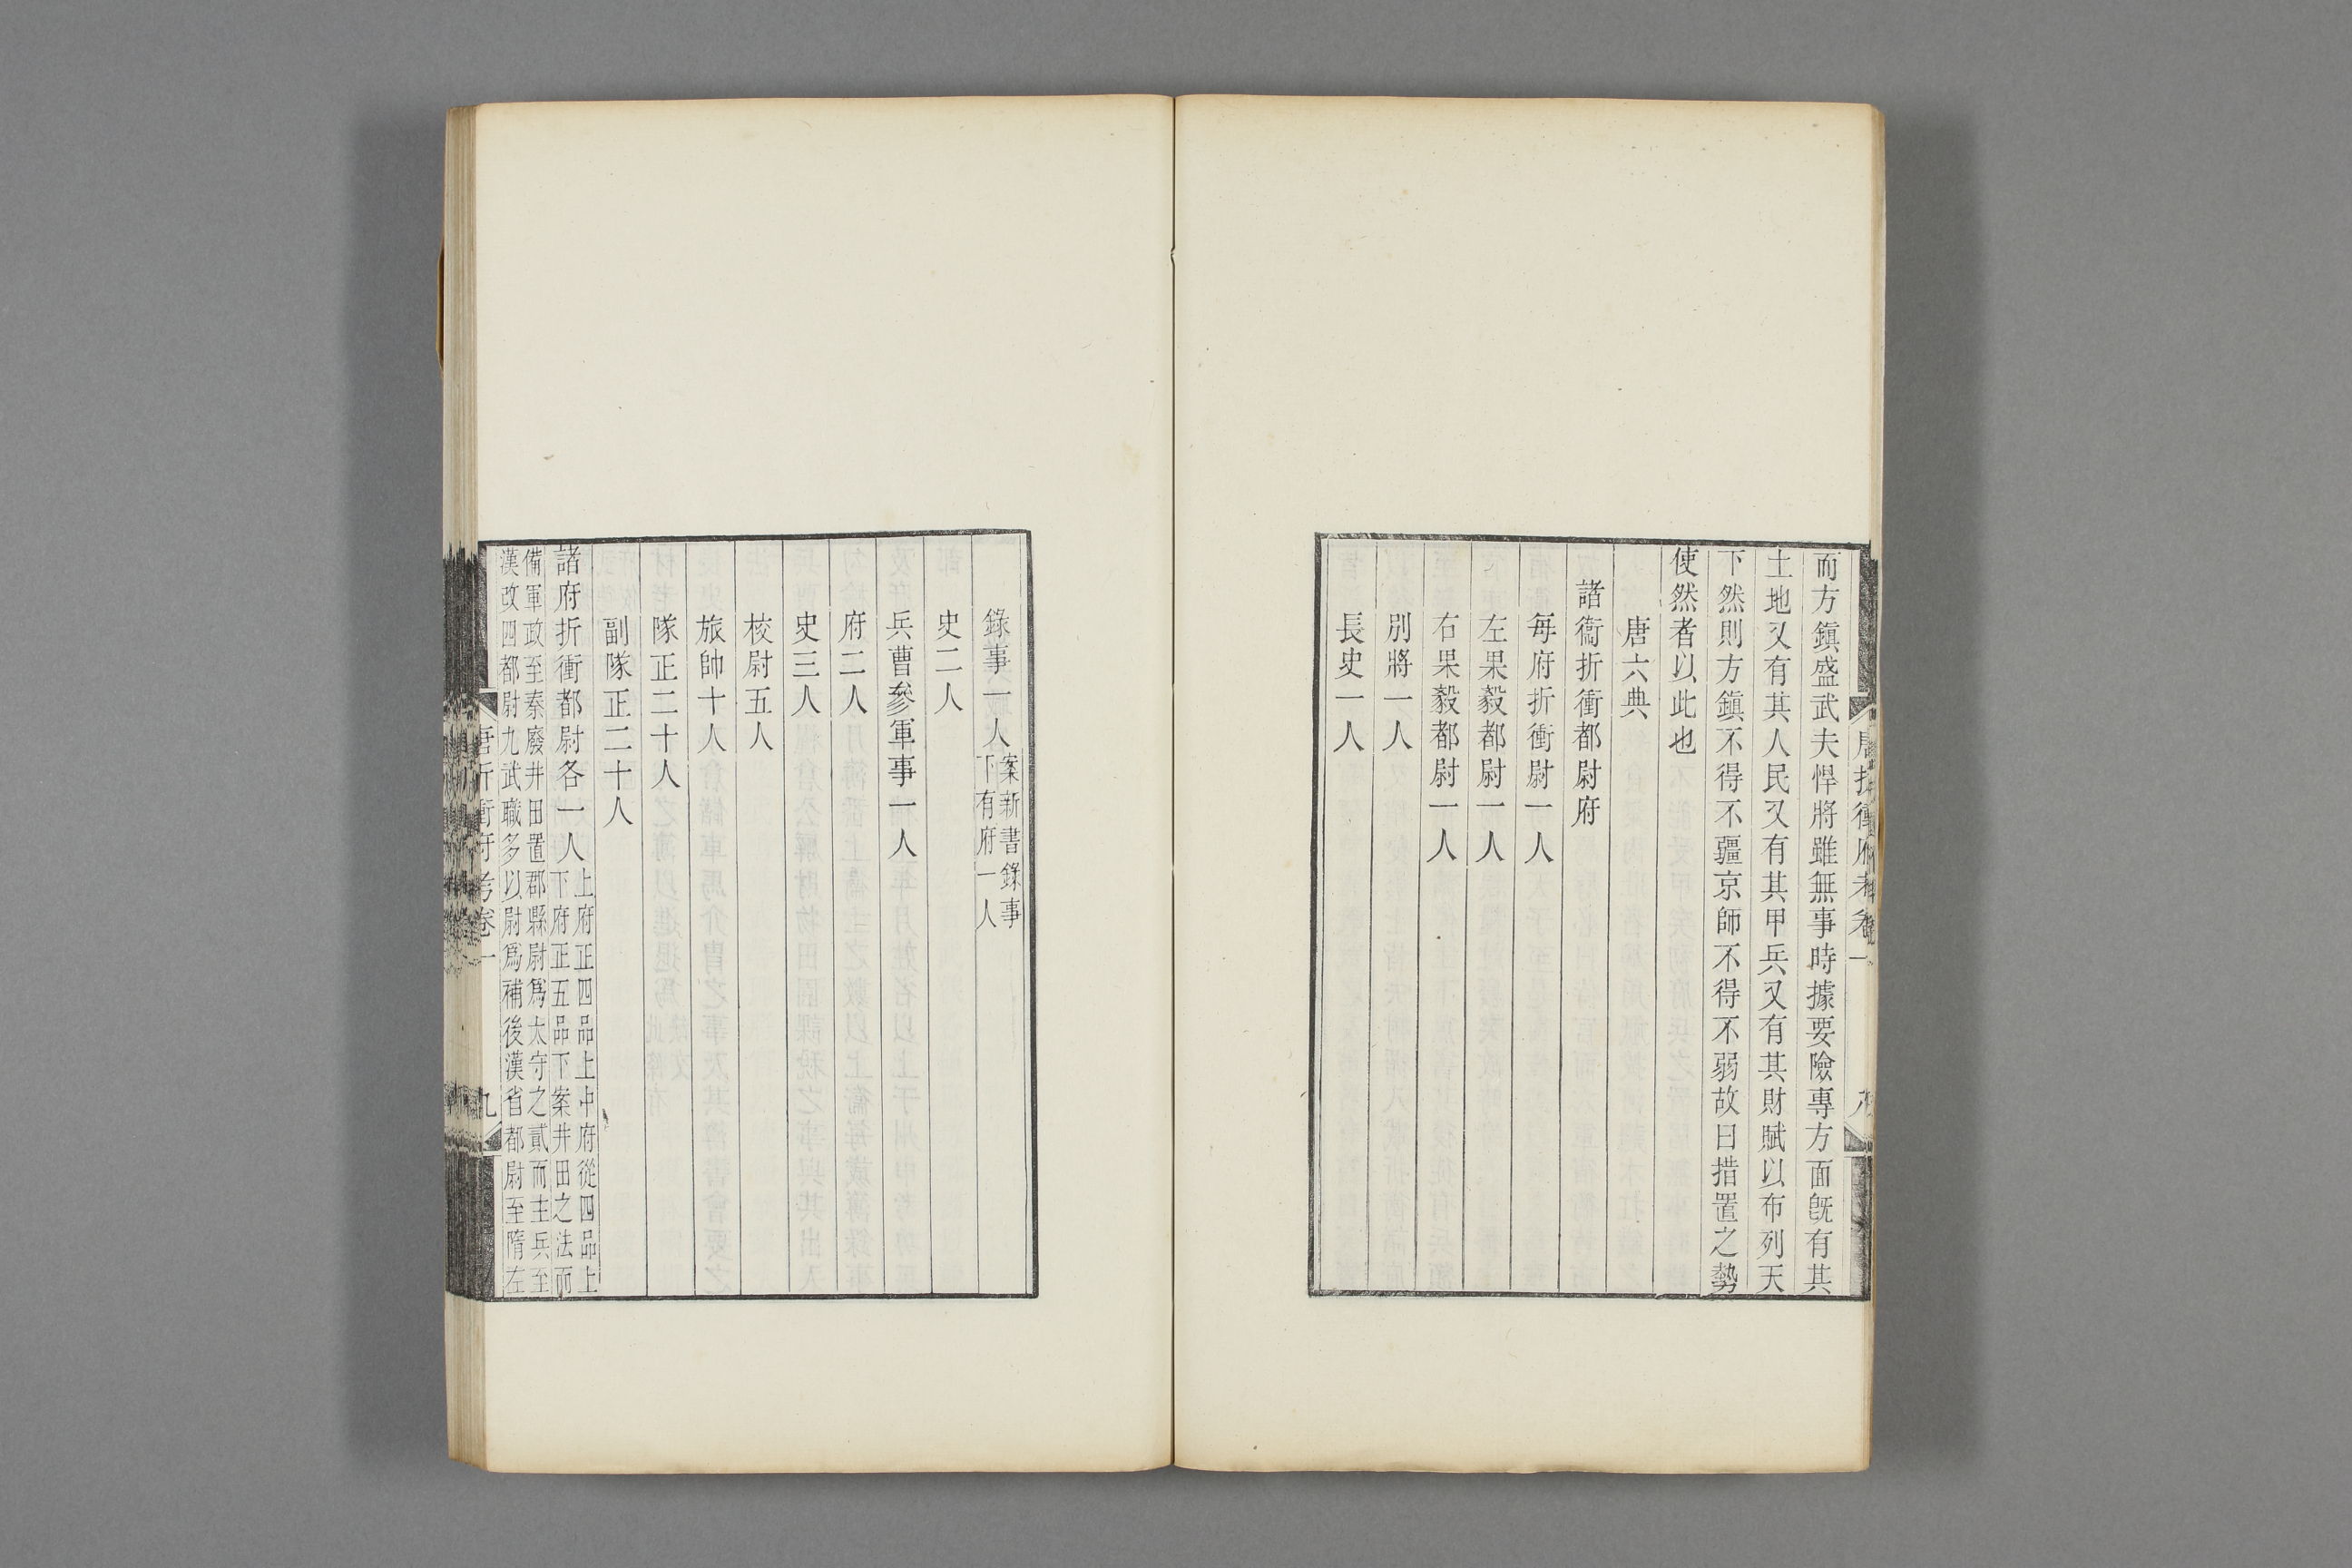 而方鎮盛武夫悍將雖無事時據要險專方面旣有其
土地又有其人民又有其甲兵又有其財賦以布列天
下然則方鎮不得不疆京師不得不弱故曰措置之勢
使然者以此也
唐六典
諸衞折衝都尉府
每府折衝都尉一人
左果毅都尉一人
右果毅都尉一人
別將一人
長史一人
錄事一人案新書錄事下有府一人
史二人
兵曹參軍事一人
府二人
史三人
校尉五人
旅帥十人
隊正二十人
副隊正二十人
諸府折衝都尉各一人上府正四品上中府從四品上下府正五品下案井田之法而
備軍政至秦廢井田置郡縣尉爲太守之貳而主兵至
漢改四都尉九武職多以尉爲補後漢省都尉至隋左
唐折衝府考卷一
九